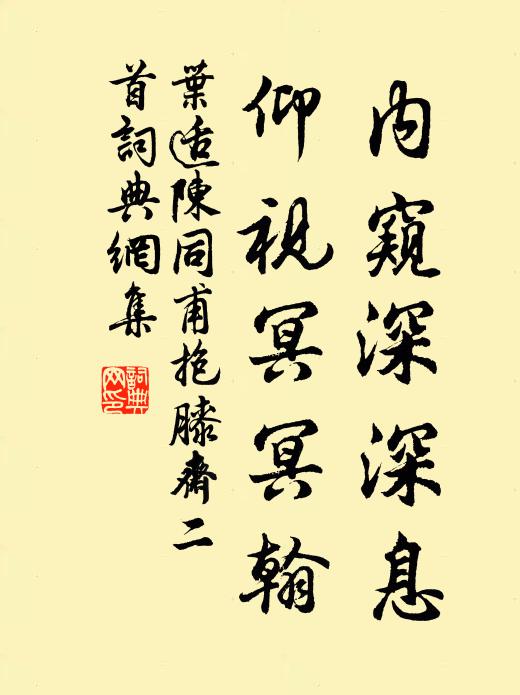 内窺深深息
仰視冥冥翰
葉适陳同甫抱膝齋二
首詞典網集
詞典
网印